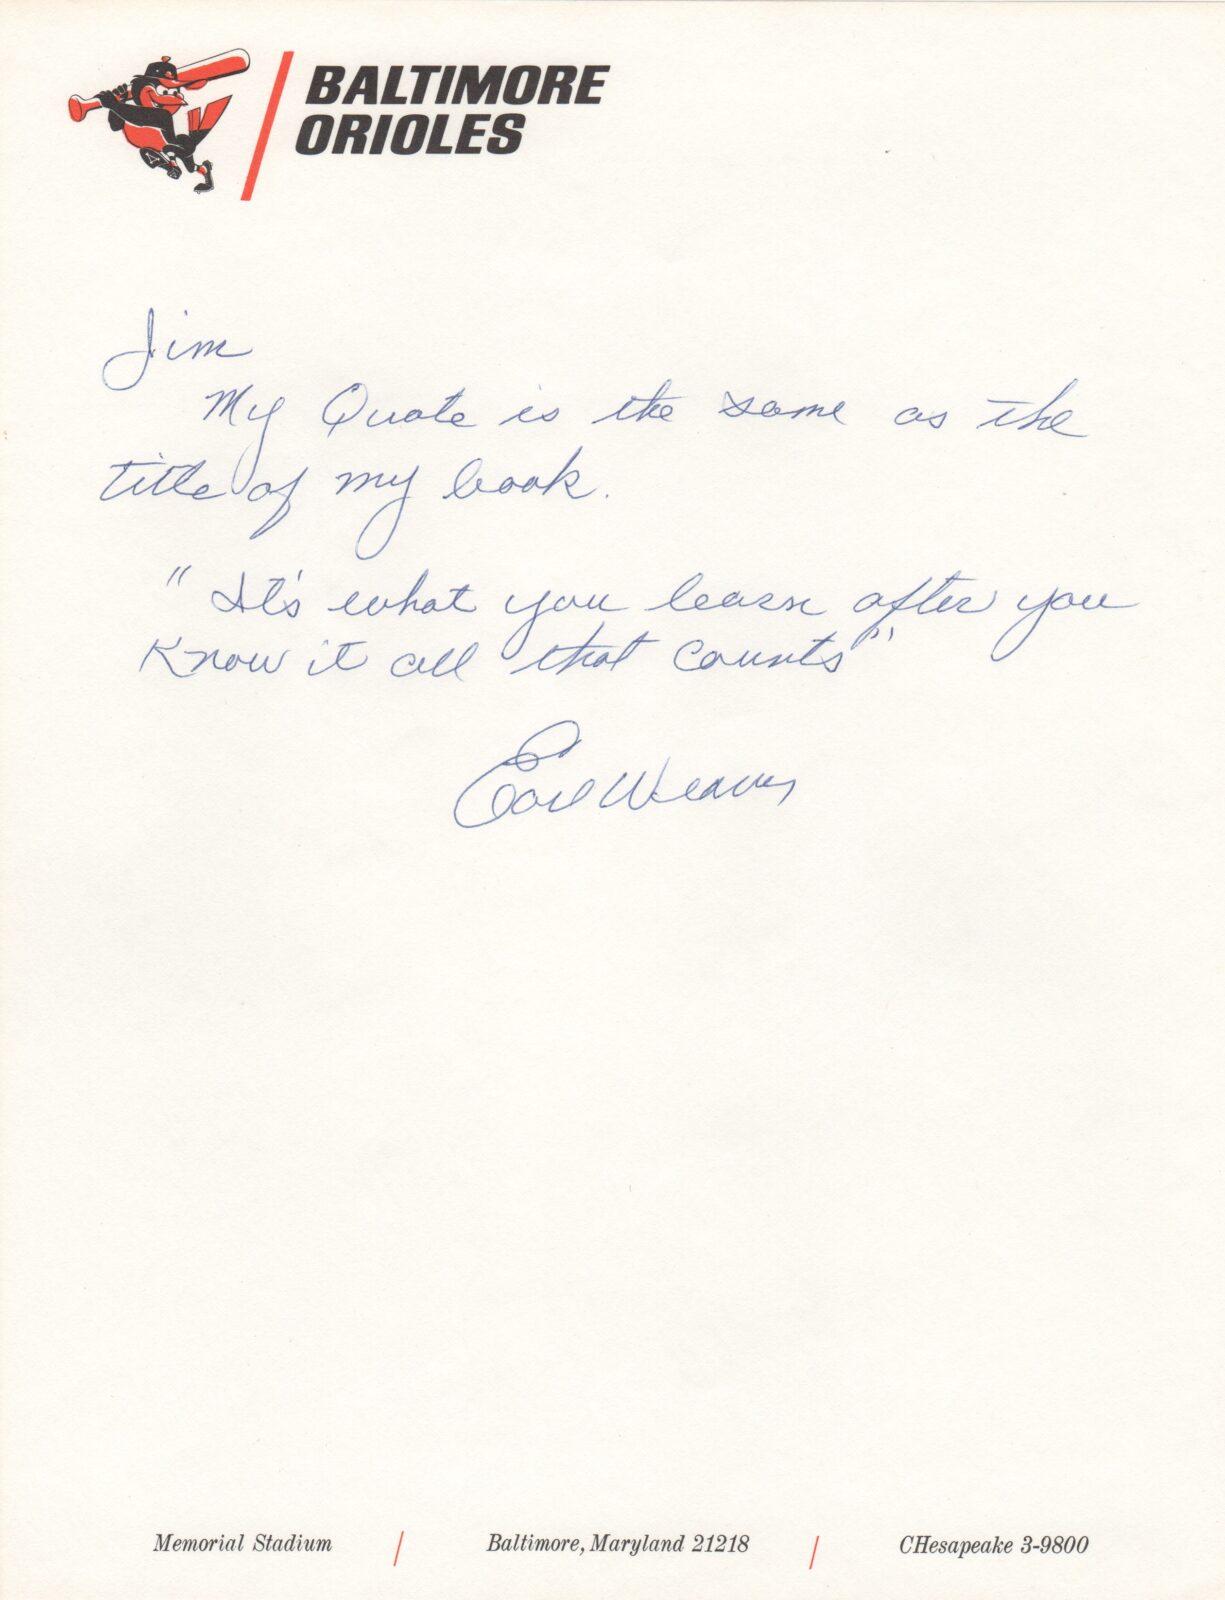 BALTIMORE
ORIOLES
Jim
My Quote is the same as the
title of my book.
"It's what you learn after you
Know it all that counts"
Earl Weaver
Memorial Stadium / Baltimore, Maryland 21218 / CHesapeake 3-9800